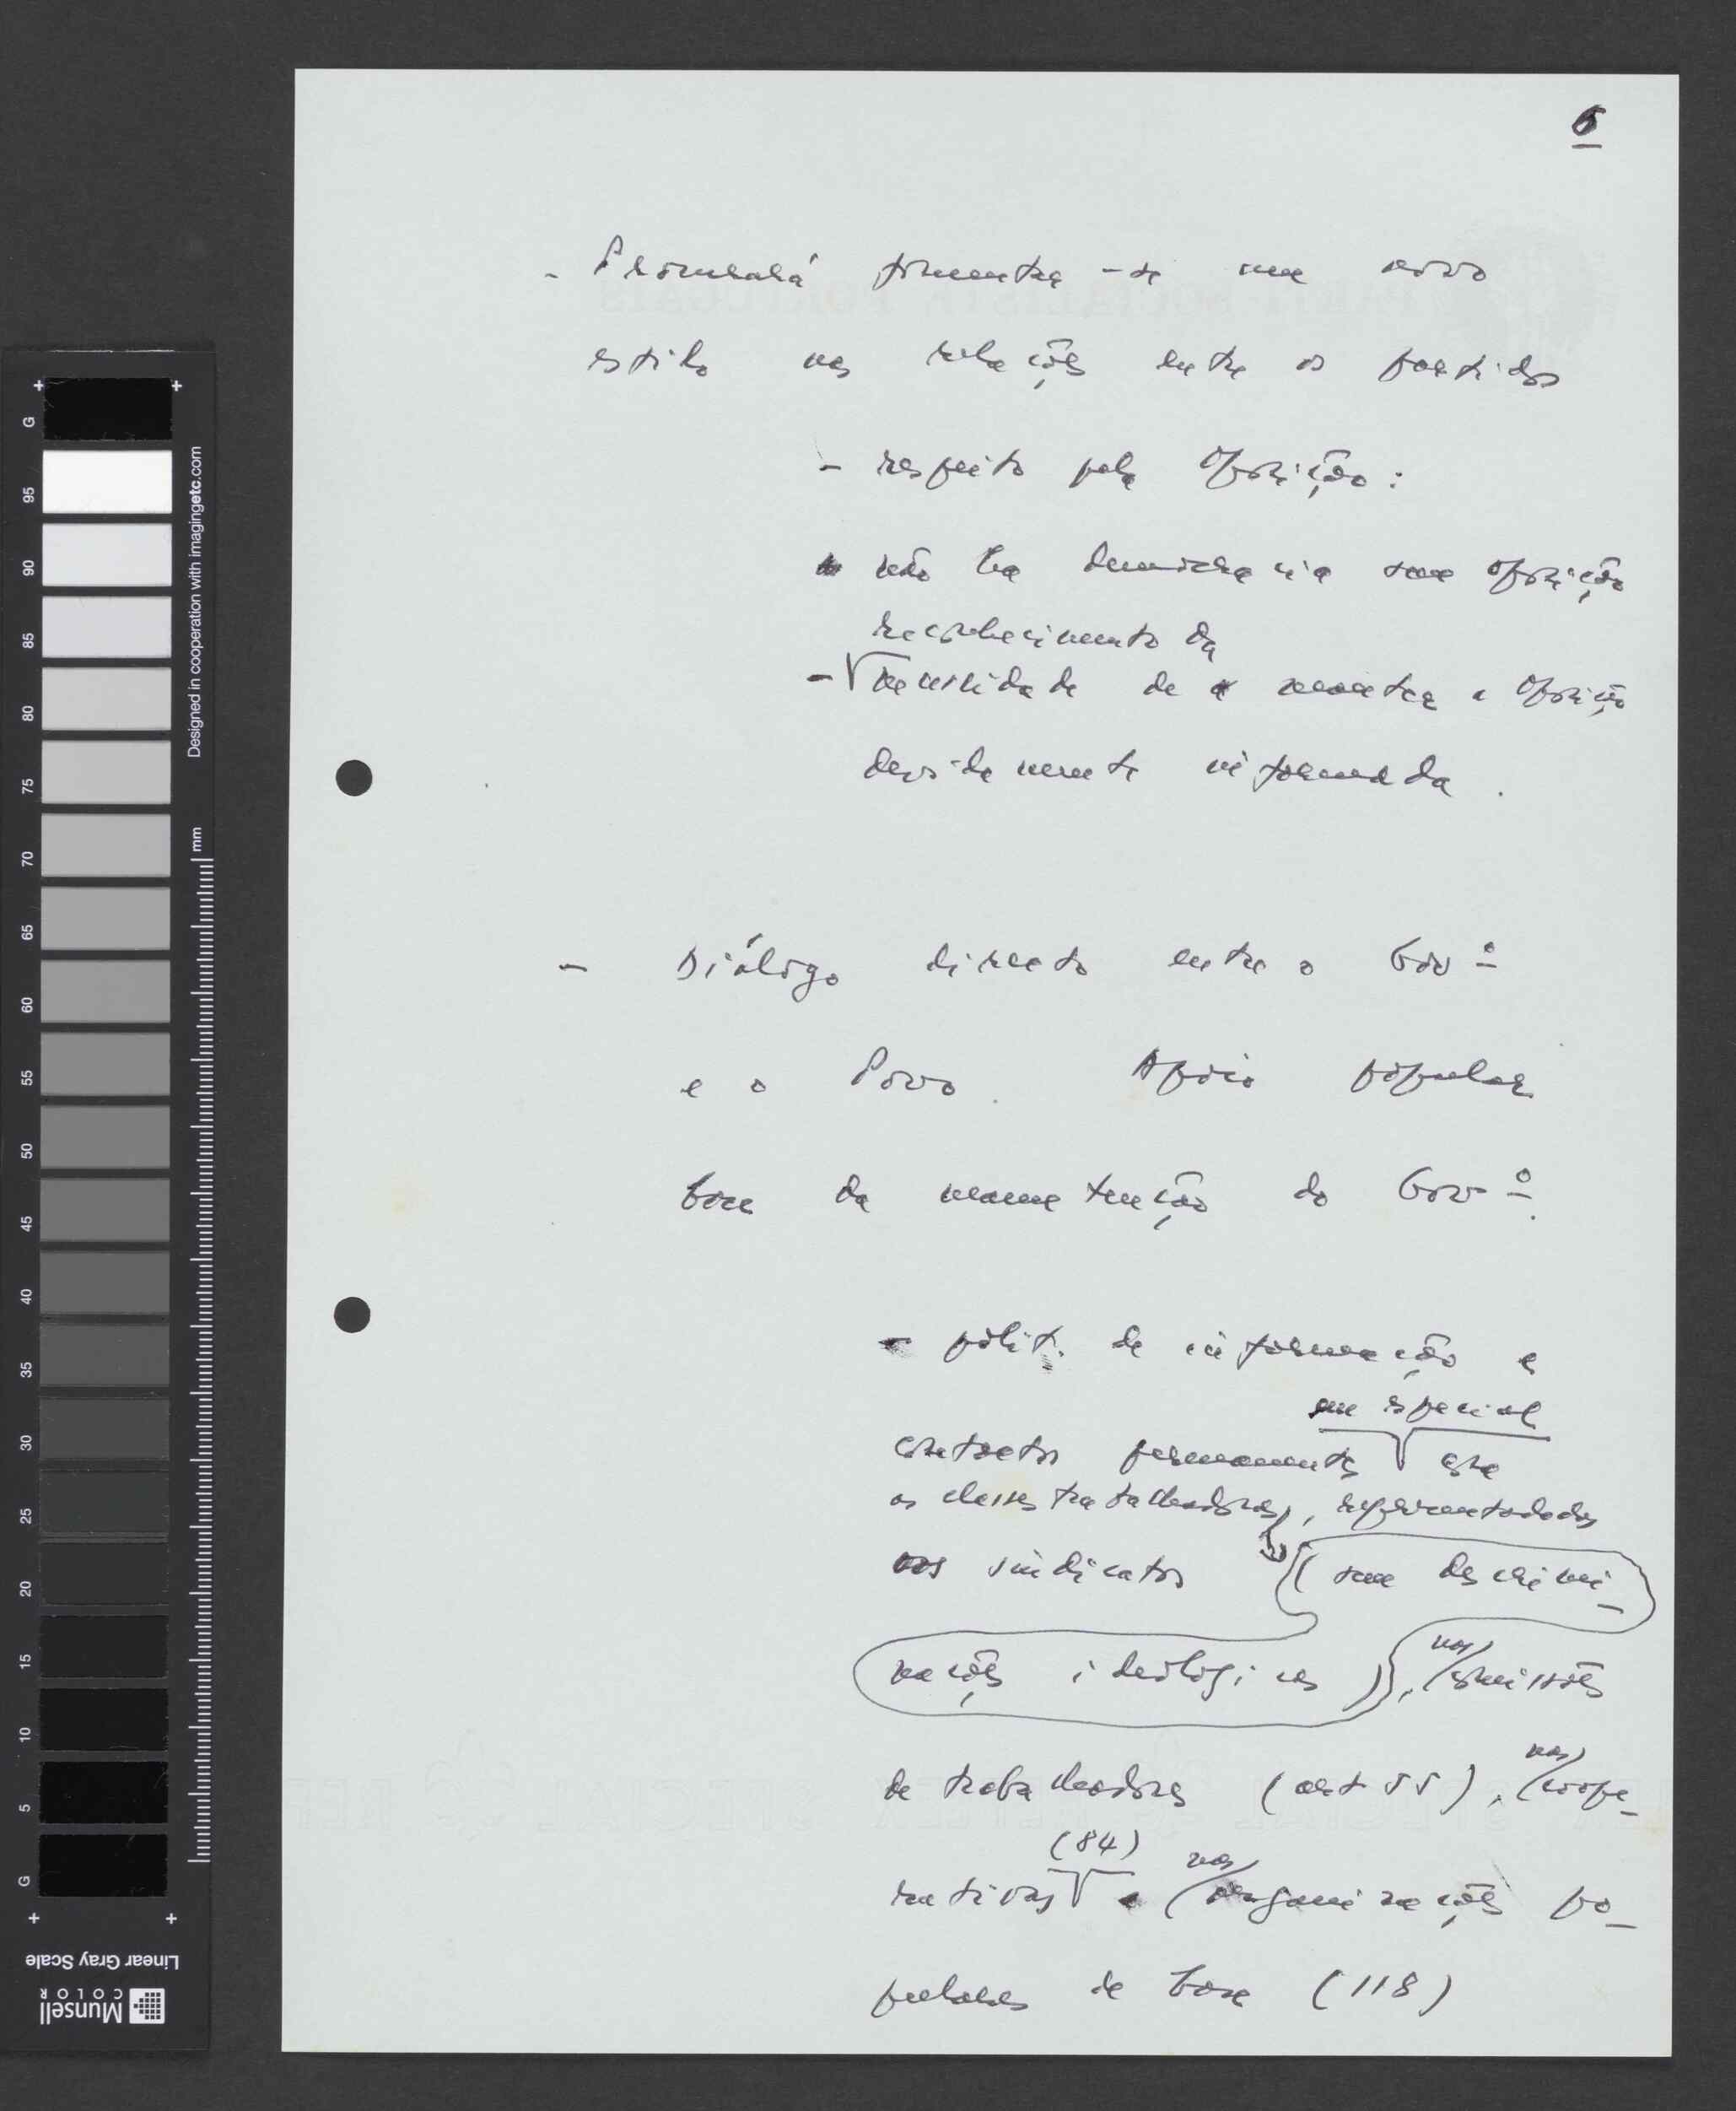 6
- Procurará fomentar-se um novo
estilo nas relações entre os partidos
- respeito pela Oposição:
não há democracia sem oposição
reconhecimento da
- necessidade de manter a Oposição
devidamente informada.
- Diálogo directo entre o Govº
e o Povo. Apoio popular
base da manutenção do Govº.
- polit. de informação e
em especial
contactos permanentes com
as classes trabalhadoras, representadas
nos sindicatos (sem descrimi-
nações ideológicas), nas comissões
de trabalhadores (art 55), nas coope-
(84)
rativas e nas organizações po-
pulares de base (118)
Designed in cooperation with imagingetc.com
mm
G 95 90 85 80 75 70 65 60 55 50 45 40 35 30 25 20 15 10 5 G
Linear Gray Scale
Munsell
COLOR